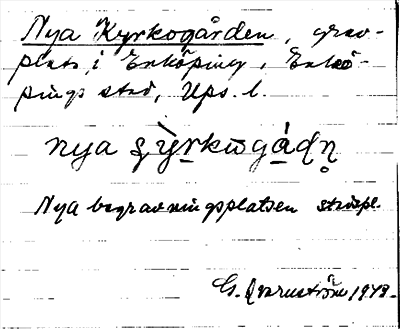 Nya Kyrkogården, grav-
plats i Enköping, Enkö-
pings stad, Ups. l.
nya
Nya begravningsplatsen
G. Qvarnström 1943.